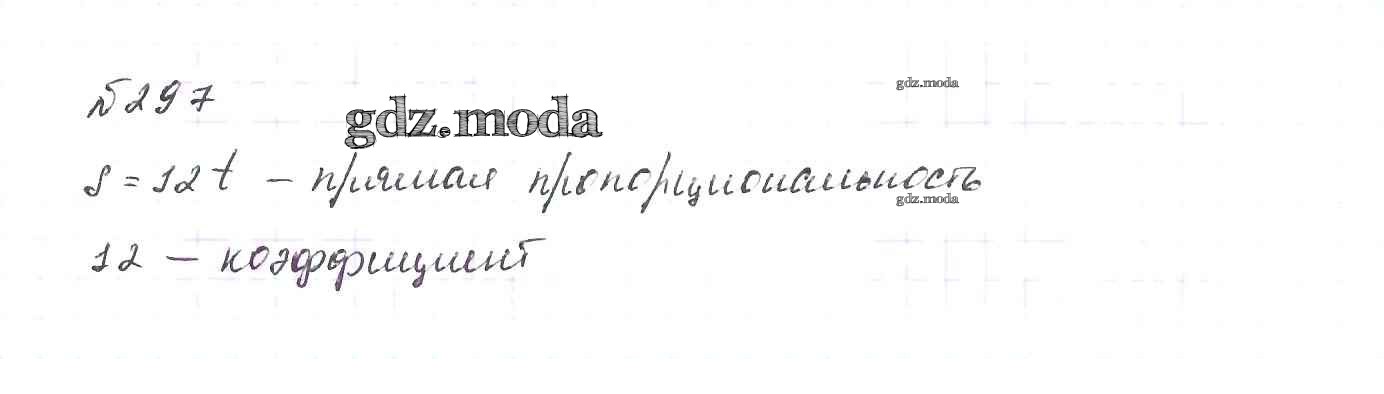 №297
gdz.moda
gdz.moda
S = 12t – прямая пропорциональность
gdz.moda
12 – коэффициент